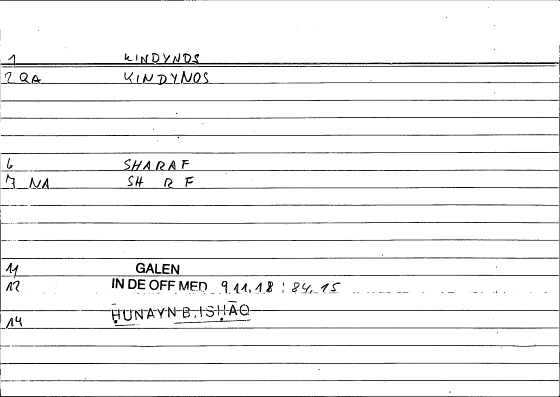 1 KINDYNOS
2 QA KINDYNOS
6 SHARAF
7 NA SH R F
11 GALEN
12 IN DE OFF MED 9.11.18 : 84,15
14 ḤUNAYN B. ISḤĀQ